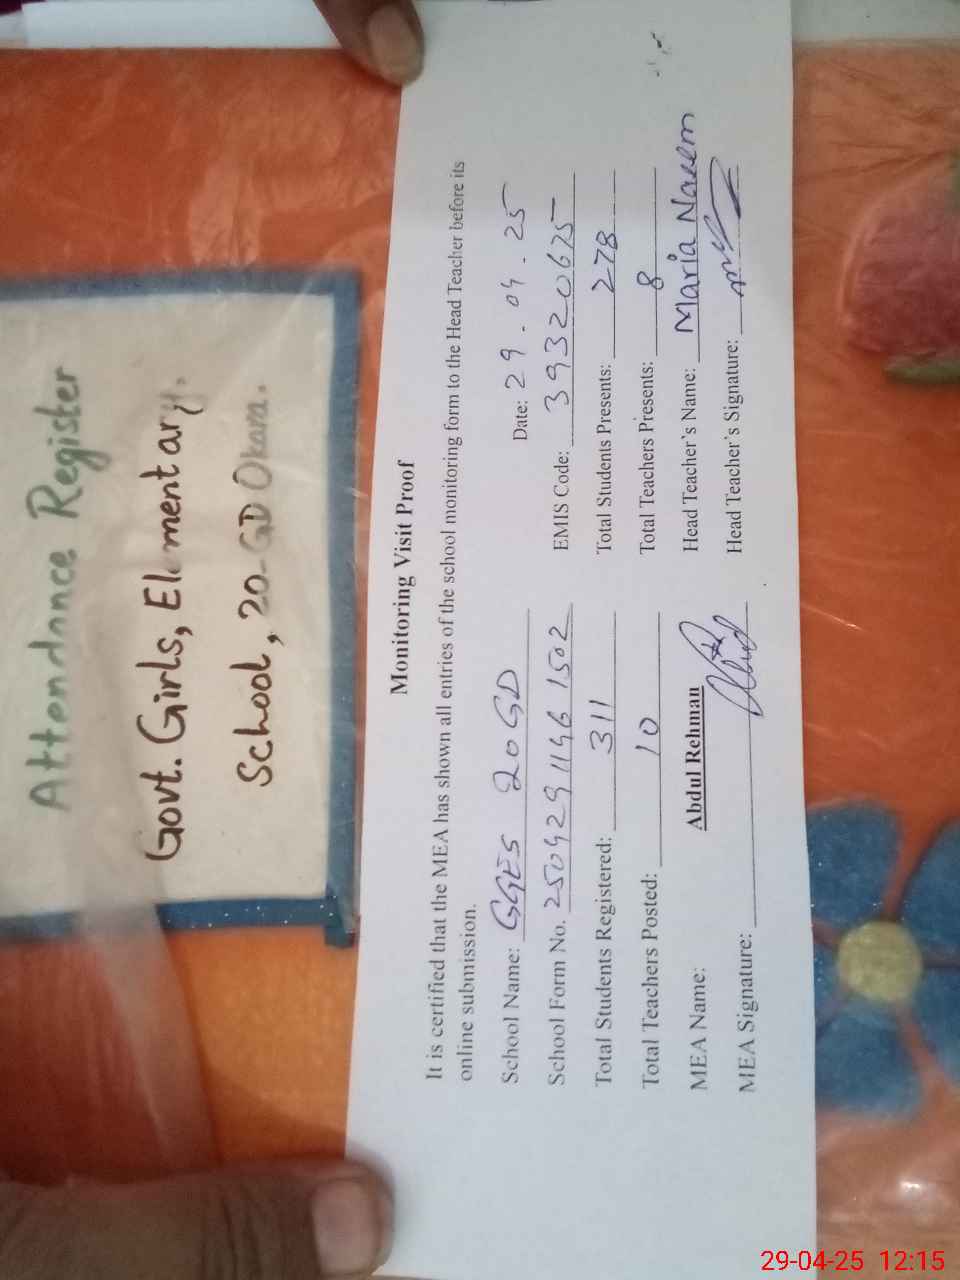 Attendance Register
Govt. Girls, Elementary.
School, 20-GD Okara.
Monitoring Visit Proof
It is certified that the MEA has shown all entries of the school monitoring form to the Head Teacher before its
online submission.
Date: 29.04.25
School Name: GGES 20 GD
EMIS Code: 39320675
School Form No. 2504291146 1502
Total Students Presents: 278
Total Students Registered: 311
Total Teachers Presents: 8
Total Teachers Posted: 10
Head Teacher's Name: Maria Naeem
MEA Name: Abdul Rehman
Head Teacher's Signature:
MEA Signature:
29-04-25 12:15